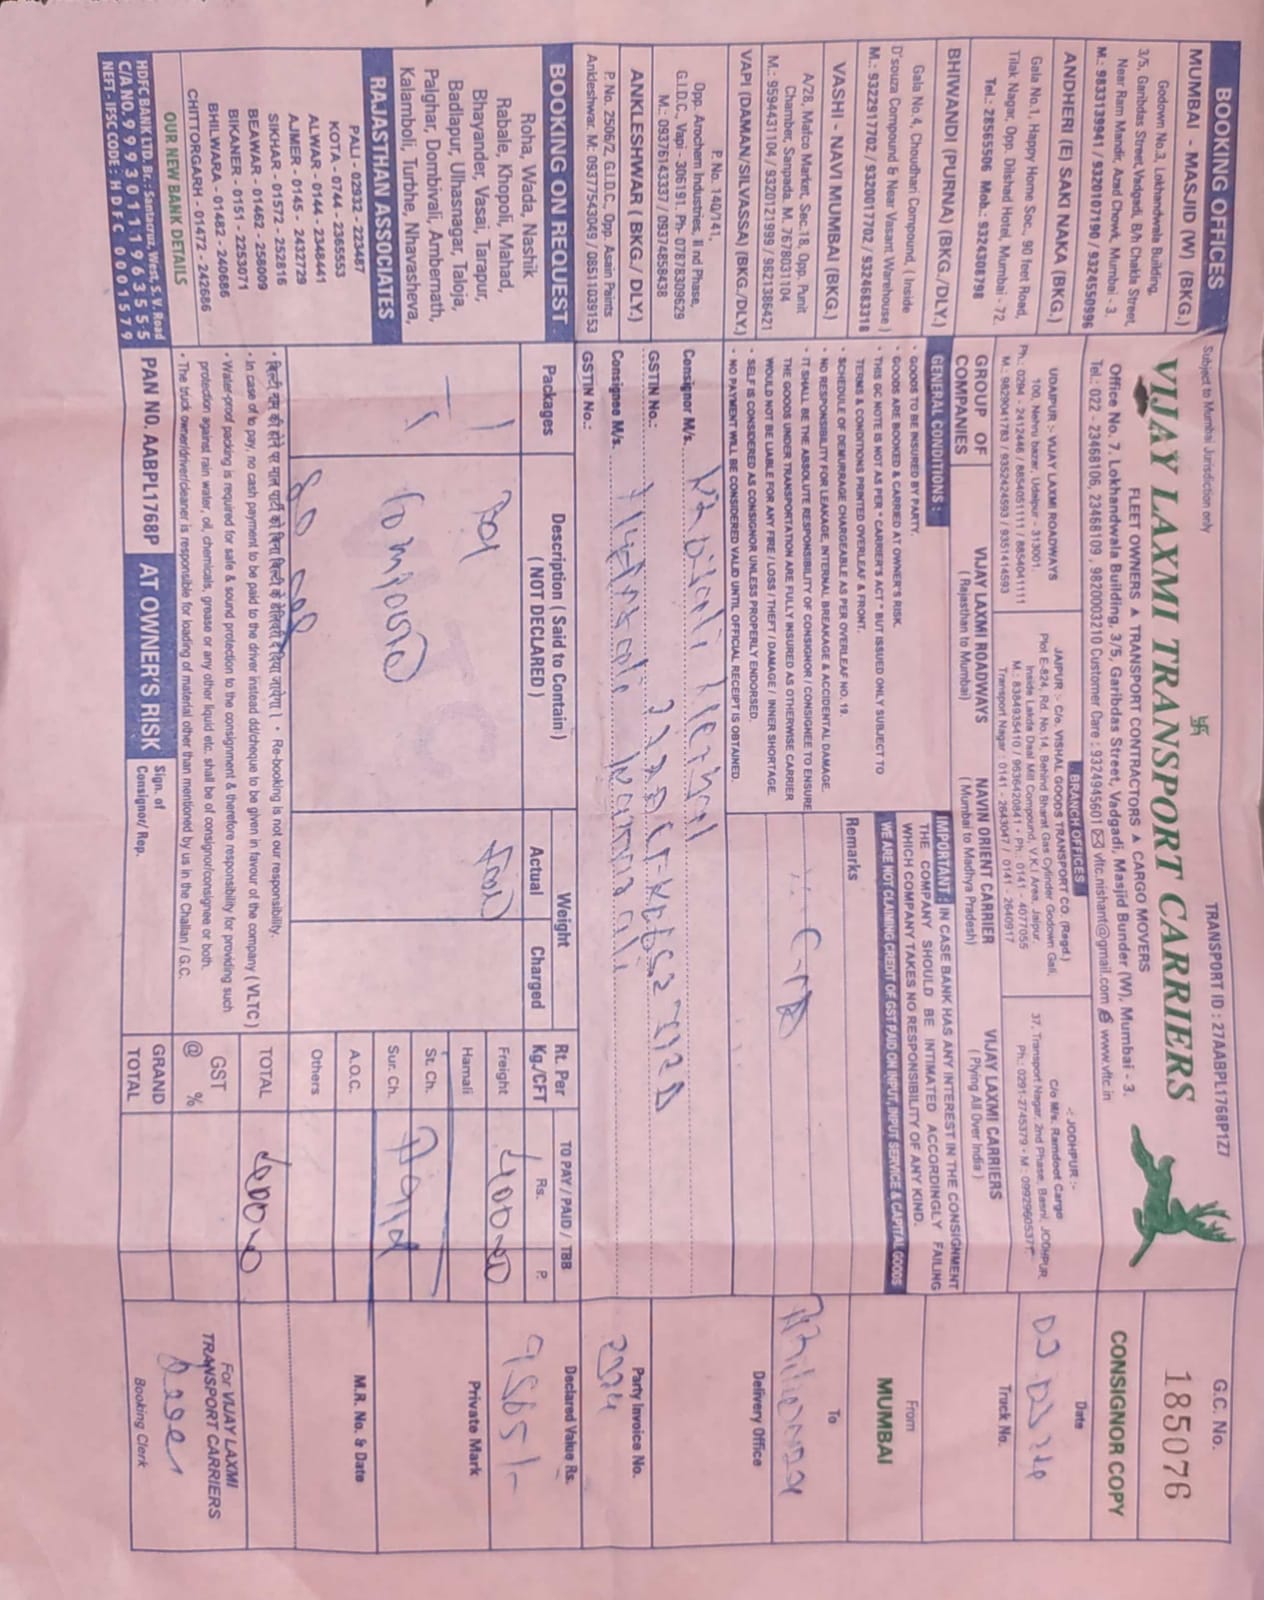 BOOKING OFFICES
MUMBAI - MASJID (W) (BKG.)
Godown No.3, Lokhandwala Building,
3/5, Garibdas Street, Vadgadi, B/h Chakla Street,
Near Ram Mandir, Azad Chowk, Mumbai - 3.
M.: 9833139941 / 9320107190 / 9324550996
ANDHERI (E) SAKI NAKA (BKG.)
Gala No.1, Happy Home Soc., 90 feet Road,
Tilak Nagar, Opp. Dilshad Hotel, Mumbai - 72.
Tel.: 28565506 Mob.: 9324308798
BHIWANDI (PURNA) (BKG./DLY.)
Gala No. 4, Choudhari Compound, ( Inside
D'souza Compound & Near Vasant Warehouse )
M.: 9322917702 / 9320017702 / 9324683318
VASHI - NAVI MUMBAI (BKG.)
A/28, Mafco Market, Sec.18, Opp. Punit
Chamber, Sanpada. M. 7678031104
M.: 9594431104 / 9320121999 / 9821386421
VAPI (DAMAN/SILVASSA) (BKG./DLY.)
P. No. 140/141,
Opp. Arochem Industries, II nd Phase,
G.I.D.C., Vapi - 306191. Ph- 07878309629
M.: 09376143337 / 0937458438
ANKLESHWAR ( BKG./ DLY.)
P. No. 2506/2, G.I.D.C., Opp. Asain Paints
Ankleshwar. M: 09377543049 / 08511039153
BOOKING ON REQUEST
Roha, Wada, Nashik
Rabale, Khopoli, Mahad,
Bhayander, Vasai, Tarapur,
Badlapur, Ulhasnagar, Taloja,
Palghar, Dombivali, Ambernath,
Kalamboli, Turbhe, Nhavasheva,
RAJASTHAN ASSOCIATES
PALI - 02932 - 223487
KOTA - 0744 - 2365553
ALWAR - 0144 - 2348441
AJMER - 0145 - 2432729
SIKHAR - 01572 - 252816
BEAWAR - 01462 - 258009
BIKANER - 0151 - 2253071
BHILWARA - 01482 - 240686
CHITTORGARH - 01472 - 242686
OUR NEW BANK DETAILS
HDFC BANK LTD. Br.: Santacruz, West, S.V. Road
C/A NO. 99930111963555
NEFT : IFSC CODE : HDFC 0001579
Subject to Mumbai Jurisdiction only
TRANSPORT ID : 27AABPL1768P1Z7
VIJAY LAXMI TRANSPORT CARRIERS
FLEET OWNERS ▲ TRANSPORT CONTRACTORS ▲ CARGO MOVERS
Office No. 7, Lokhandwala Building, 3/5, Garibdas Street, Vadgadi, Masjid Bunder (W), Mumbai - 3.
Tel.: 022 - 23468106, 23468109 , 9820003210 Customer Care : 9324945601 vltc.nishant@gmail.com www.vltc.in
BRANCH OFFICES
UDAIPUR :- VIJAY LAXMI ROADWAYS
100, Nehru bazar, Udaipur - 313001.
Ph.: 0294 - 2412446 / 8854051111 / 8854041111
M.: 9829041783 / 9352424593 / 9351414593
JAIPUR :- C/o. VISHAL GOODS TRANSPORT CO. (Regd.)
Plot E-824, Rd. No.14, Behind Bharat Gas Cylinder Godown Gali,
Inside Lakda Daal Mill Compound, V.K.I Area, Jaipur.
M.: 8384935410 / 9636420841 • Ph.: 0141 - 4077055
Transport Nagar : 0141 - 2643047 / 0141 - 2640917
-: JODHPUR :-
C/o M/s. Ramdoot Cargo
37, Transport Nagar, 2nd Phase, Basni, JODHPUR.
Ph.: 0291-2745379 • M.: 09929605377
GROUP OF COMPANIES
VIJAY LAXMI ROADWAYS
( Rajasthan to Mumbai)
NAVIN ORIENT CARRIER
( Mumbai to Madhya Pradesh)
VIJAY LAXMI CARRIERS
( Plying All Over India )
GENERAL CONDITIONS :
• GOODS TO BE INSURED BY PARTY.
• GOODS ARE BOOKED & CARRIED AT OWNER'S RISK.
• THIS GC NOTE IS NOT AS PER " CARRIER'S ACT " BUT ISSUED ONLY SUBJECT TO
TERMS & CONDITIONS PRINTED OVERLEAF & FRONT.
• SCHEDULE OF DEMURRAGE CHARGEABLE AS PER OVERLEAF NO. 19.
• NO RESPONSIBILITY FOR LEAKAGE, INTERNAL BREAKAGE & ACCIDENTAL DAMAGE.
• IT SHALL BE THE ABSOLUTE RESPONSIBILITY OF CONSIGNOR / CONSIGNEE TO ENSURE
THE GOODS UNDER TRANSPORTATION ARE FULLY INSURED AS OTHERWISE CARRIER
WOULD NOT BE LIABLE FOR ANY FIRE / LOSS / THEFT / DAMAGE / INNER SHORTAGE.
• SELF IS CONSIDERED AS CONSIGNOR UNLESS PROPERLY ENDORSED.
• NO PAYMENT WILL BE CONSIDERED VALID UNTIL OFFICIAL RECEIPT IS OBTAINED.
IMPORTANT : IN CASE BANK HAS ANY INTEREST IN THE CONSIGNMENT
THE COMPANY SHOULD BE INTIMATED ACCORDINGLY FAILING
WHICH COMPANY TAKES NO RESPONSIBILITY OF ANY KIND.
WE ARE NOT CLAIMING CREDIT OF GST PAID ON INPUT, INPUT SERVICE & CAPITAL GOODS
Remarks
G.C. No.
185076
CONSIGNOR COPY
Date
Truck No.
From
MUMBAI
To
Delivery Office
Consignor M/s.
GSTIN No.:
Consignee M/s.
GSTIN No.:
Party Invoice No.
Packages
Description ( Said to Contain )
( NOT DECLARED )
Weight
Actual
Charged
Rt. Per
Kg./CFT
TO PAY / PAID / TBB
Rs.
P.
Declared Value Rs.
1 Box
Compound
Freight
400=00
9505/-
Hamali
Private Mark
St. Ch.
Sur. Ch.
A.O.C.
M.R. No. & Date
Others
TOTAL
400=00
GST
@ %
GRAND
TOTAL
• बिल्टी नाम की होने पर माल पार्टी को बिना बिल्टी के डिलिवरी दे दिया जायेगा। • Re-booking is not our responsibility.
• In case of to pay, no cash payment to be paid to the driver instead dd/cheque to be given in favour of the company ( VLTC )
• Water-proof packing is required for safe & sound protection to the consignment & therefore responsibility for providing such
protection against rain water, oil, chemicals, grease or any other liquid etc. shall be of consignor/consignee or both.
• The truck owner/driver/cleaner is responsible for loading of material other than mentioned by us in the Challan / G.C.
PAN NO. AABPL1768P
AT OWNER'S RISK
Sign. of
Consignor/ Rep.
For VIJAY LAXMI
TRANSPORT CARRIERS
Booking Clerk